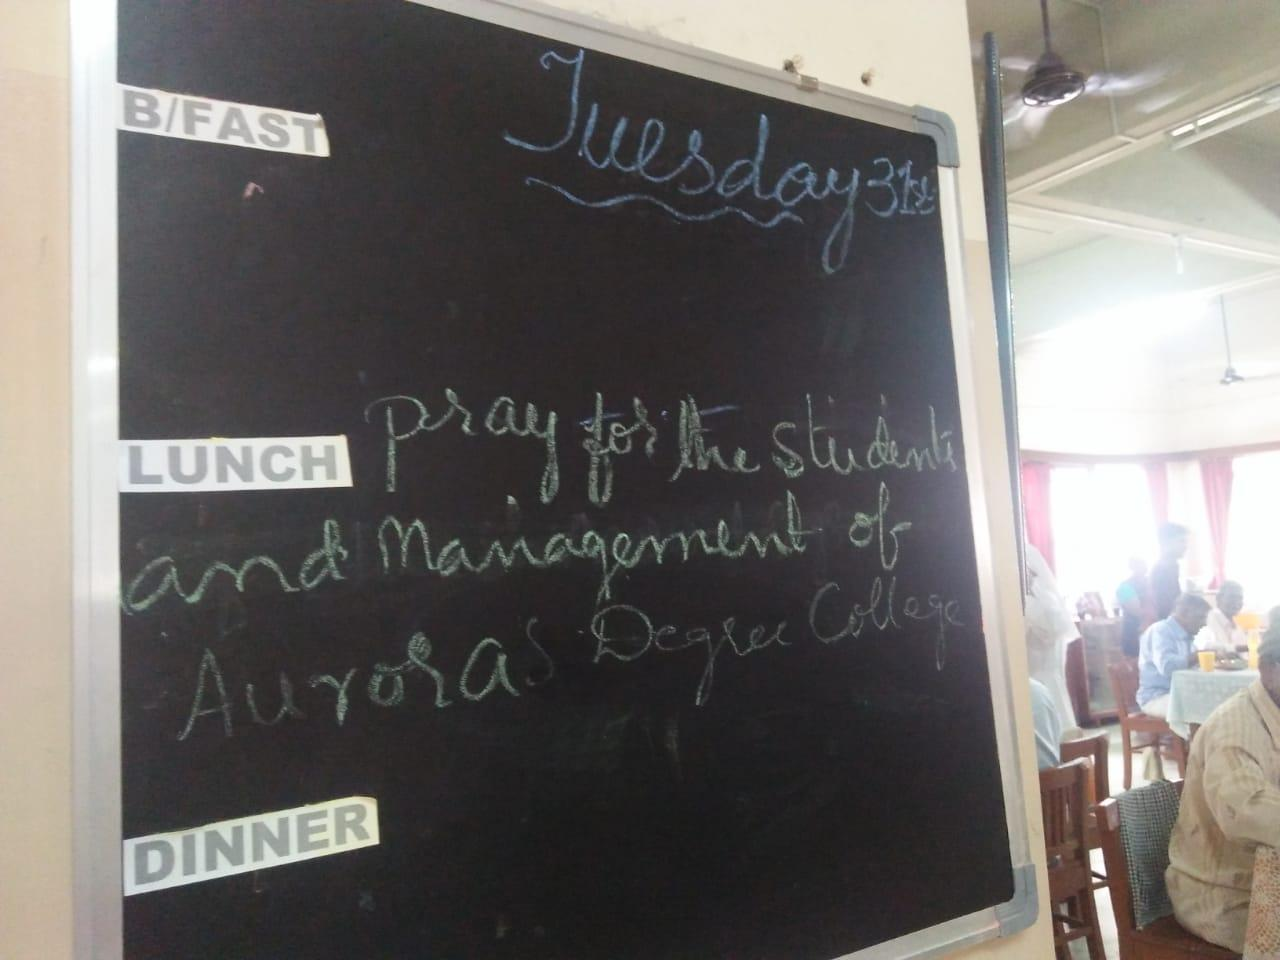 B/FAST
Tuesday 31st
LUNCH
Pray for the students
and Management of
Aurora's Degree College
DINNER